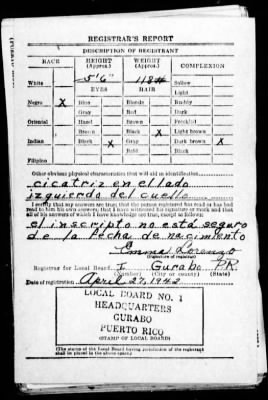 REGISTRAR'S REPORT
DESCRIPTION OF REGISTRANT
RACE HEIGHT (Approx.) WEIGHT (Approx.) COMPLEXION
White 5'6" 118# Sallow
EYES HAIR Light
Negro X Blue Blonde Ruddy
Gray Red Dark
Oriental Hazel Brown Freckled
Brown Black X Light brown
Indian Black X Gray Dark brown X
Bald Black
Filipino
Other obvious physical characteristics that will aid in identification
cicatriz en el lado
izquierdo del cuello
I certify that my answers are true; that the person registered has read or has had
read to him his own answers; that I have witnessed his signature or mark and that
all of his answers of which I have knowledge are true, except as follows:
el inscripto no está seguro
de la fecha de nacimiento
Emma Lorenzo
(Signature of registrar)
Registrar for Local Board 1 Gurabo P.R.
(Number) (City or county) (State)
Date of registration April 27, 1942
LOCAL BOARD NO. 1
HEADQUARTERS
GURABO
PUERTO RICO
(STAMP OF LOCAL BOARD)
(The stamp of the Local Board having jurisdiction of the registrant
shall be placed in the above space.)